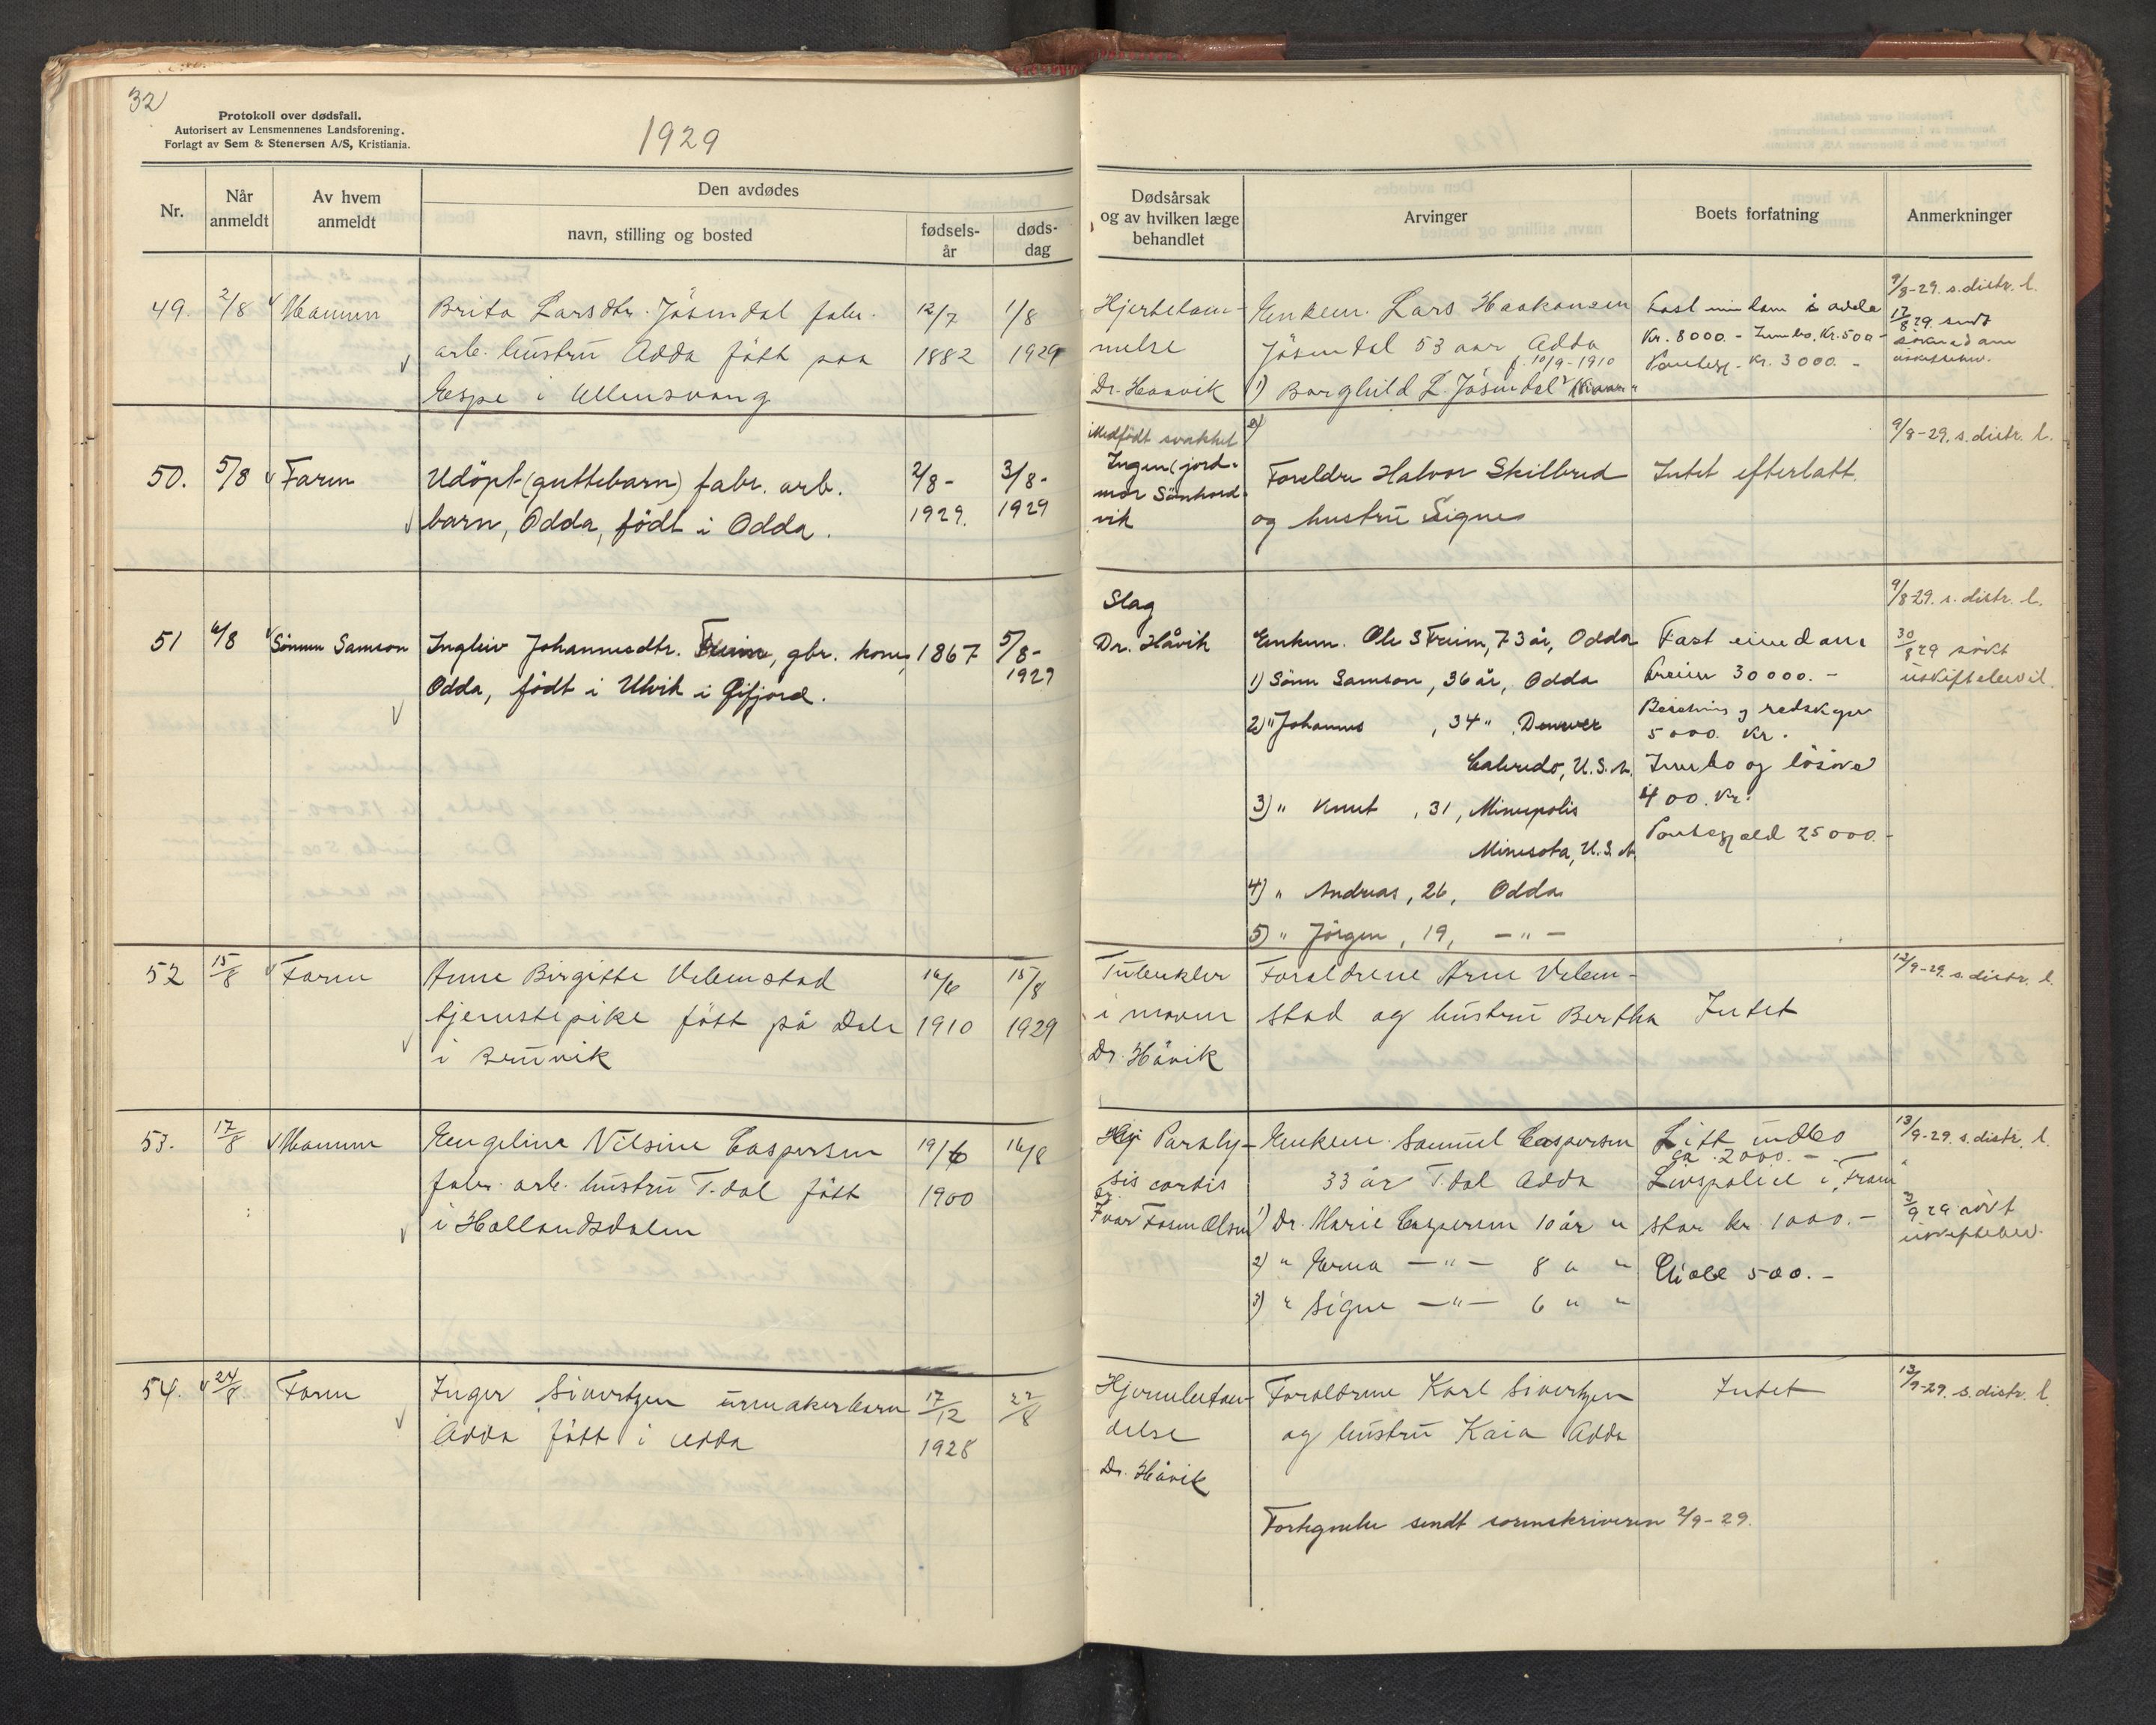 32
Protokoll over dødsfall.
Autorisert av Lensmennenes Landsforening.
Forlagt av Sem & Stenersen A/S, Kristiania.
1929
Nr.
Når anmeldt
Av hvem anmeldt
Den avdødes
navn, stilling og bosted
fødsels-år
døds-dag
Dødsårsak og av hvilken læge behandlet
Arvinger
Boets forfatning
Anmerkninger
49. 2/8 Mannen Brita Larsdtr. Jösendal fabr. 12/7 1/8
arb. hustru Odda fött paa 1882 1929
Espe i Ullensvang
Hjertelam-
melse
Dr. Haavik
Enkem. Lars Haakonsen
Jösendal 53 aar Odda
f. 10/9-1910
1) Borghild L. Jösendal
Fast eiendom i Odda
Kr. 8000.- Innbo. Kr. 500-
Pantegj. Kr. 3000.-
9/8-29. s. distr. l.
17/8 29. sendt
söknad om
uskiftebev.
50. 5/8 Faren Udöpt (guttebarn) fabr. arb. 2/8- 3/8-
barn, Odda, födt i Odda. 1929. 1929
Medfödt svakhet
Ingen (jord-
mor Sönhord-
vik
2)
Foreldre Halvor Skilbred
og hustru Signe
Intet efterlatt.
9/8-29. s. distr. l.
51 6/8 Sönnen Samson Ingleiv Johannesdtr. Freim, gbr. kone, 1867 5/8-
Odda, födt i Ulvik i Eifjord. 1929
Slag
Dr. Håvik
Enkem. Ole S Freim, 73 år, Odda
1) Sönn Samson, 36 år, Odda
2) " Johannes, 34 " Denver
Colorado, U.S.A.
3) " Knut, 31, Minepolis
Minesota, U.S.A.
4) " Andreas, 26, Odda
5) " Jörgen, 19, -"-
Fast eiendom
Freim 30000.-
Besetning og redskaper
5000. Kr.
Innbo og lösöre
400. Kr.
Pantegjæld 25000.-
9/8-29. s. distr. l.
30/8 29 sökt
uskiftebevil.
52 15/8 Faren Anne Birgitte Velemstad 16/6 15/8
tjenestepike fött på Dale 1910 1929
i Bruvik
Tuberkler
i maven
Dr. Håvik
Foreldrene Arne Velem-
stad og hustru Bertha
Intet
12/9-29. s. distr. l.
53. 17/8 Mannen Engeline Nilsine Caspersen 19/6 16/8
fabr. arb. hustru T.dal fött 1900
i Hollandsdalen
Paraly-
sis cordis
Dr.
Ivar Fosn Olsen
Enkem. Samuel Caspersen
33 år T.dal Odda
1) Dr. Marie Caspersen 10 år "
2) " Erna -"- 8 " "
3) " Signe -"- 6 " "
Litt indbo
ca. 2000.-
Livspolice i "Fram"
stor kr. 1000.-
Gjæld 500.-
13/9-29. s. distr. l.
3/9 29 sökt
uskiftebev.
54. 24/8 Faren Inger Sivertzen urmakerbarn 17/12 22/8
Odda fött i Odda 1928
Hjernebeten-
delse
Dr. Håvik
Foreldrene Karl Sivertzen
og hustru Kaia Odda
Intet
13/9-29. s. distr. l.
Fortegnelse sendt sorenskriveren 2/9-29.